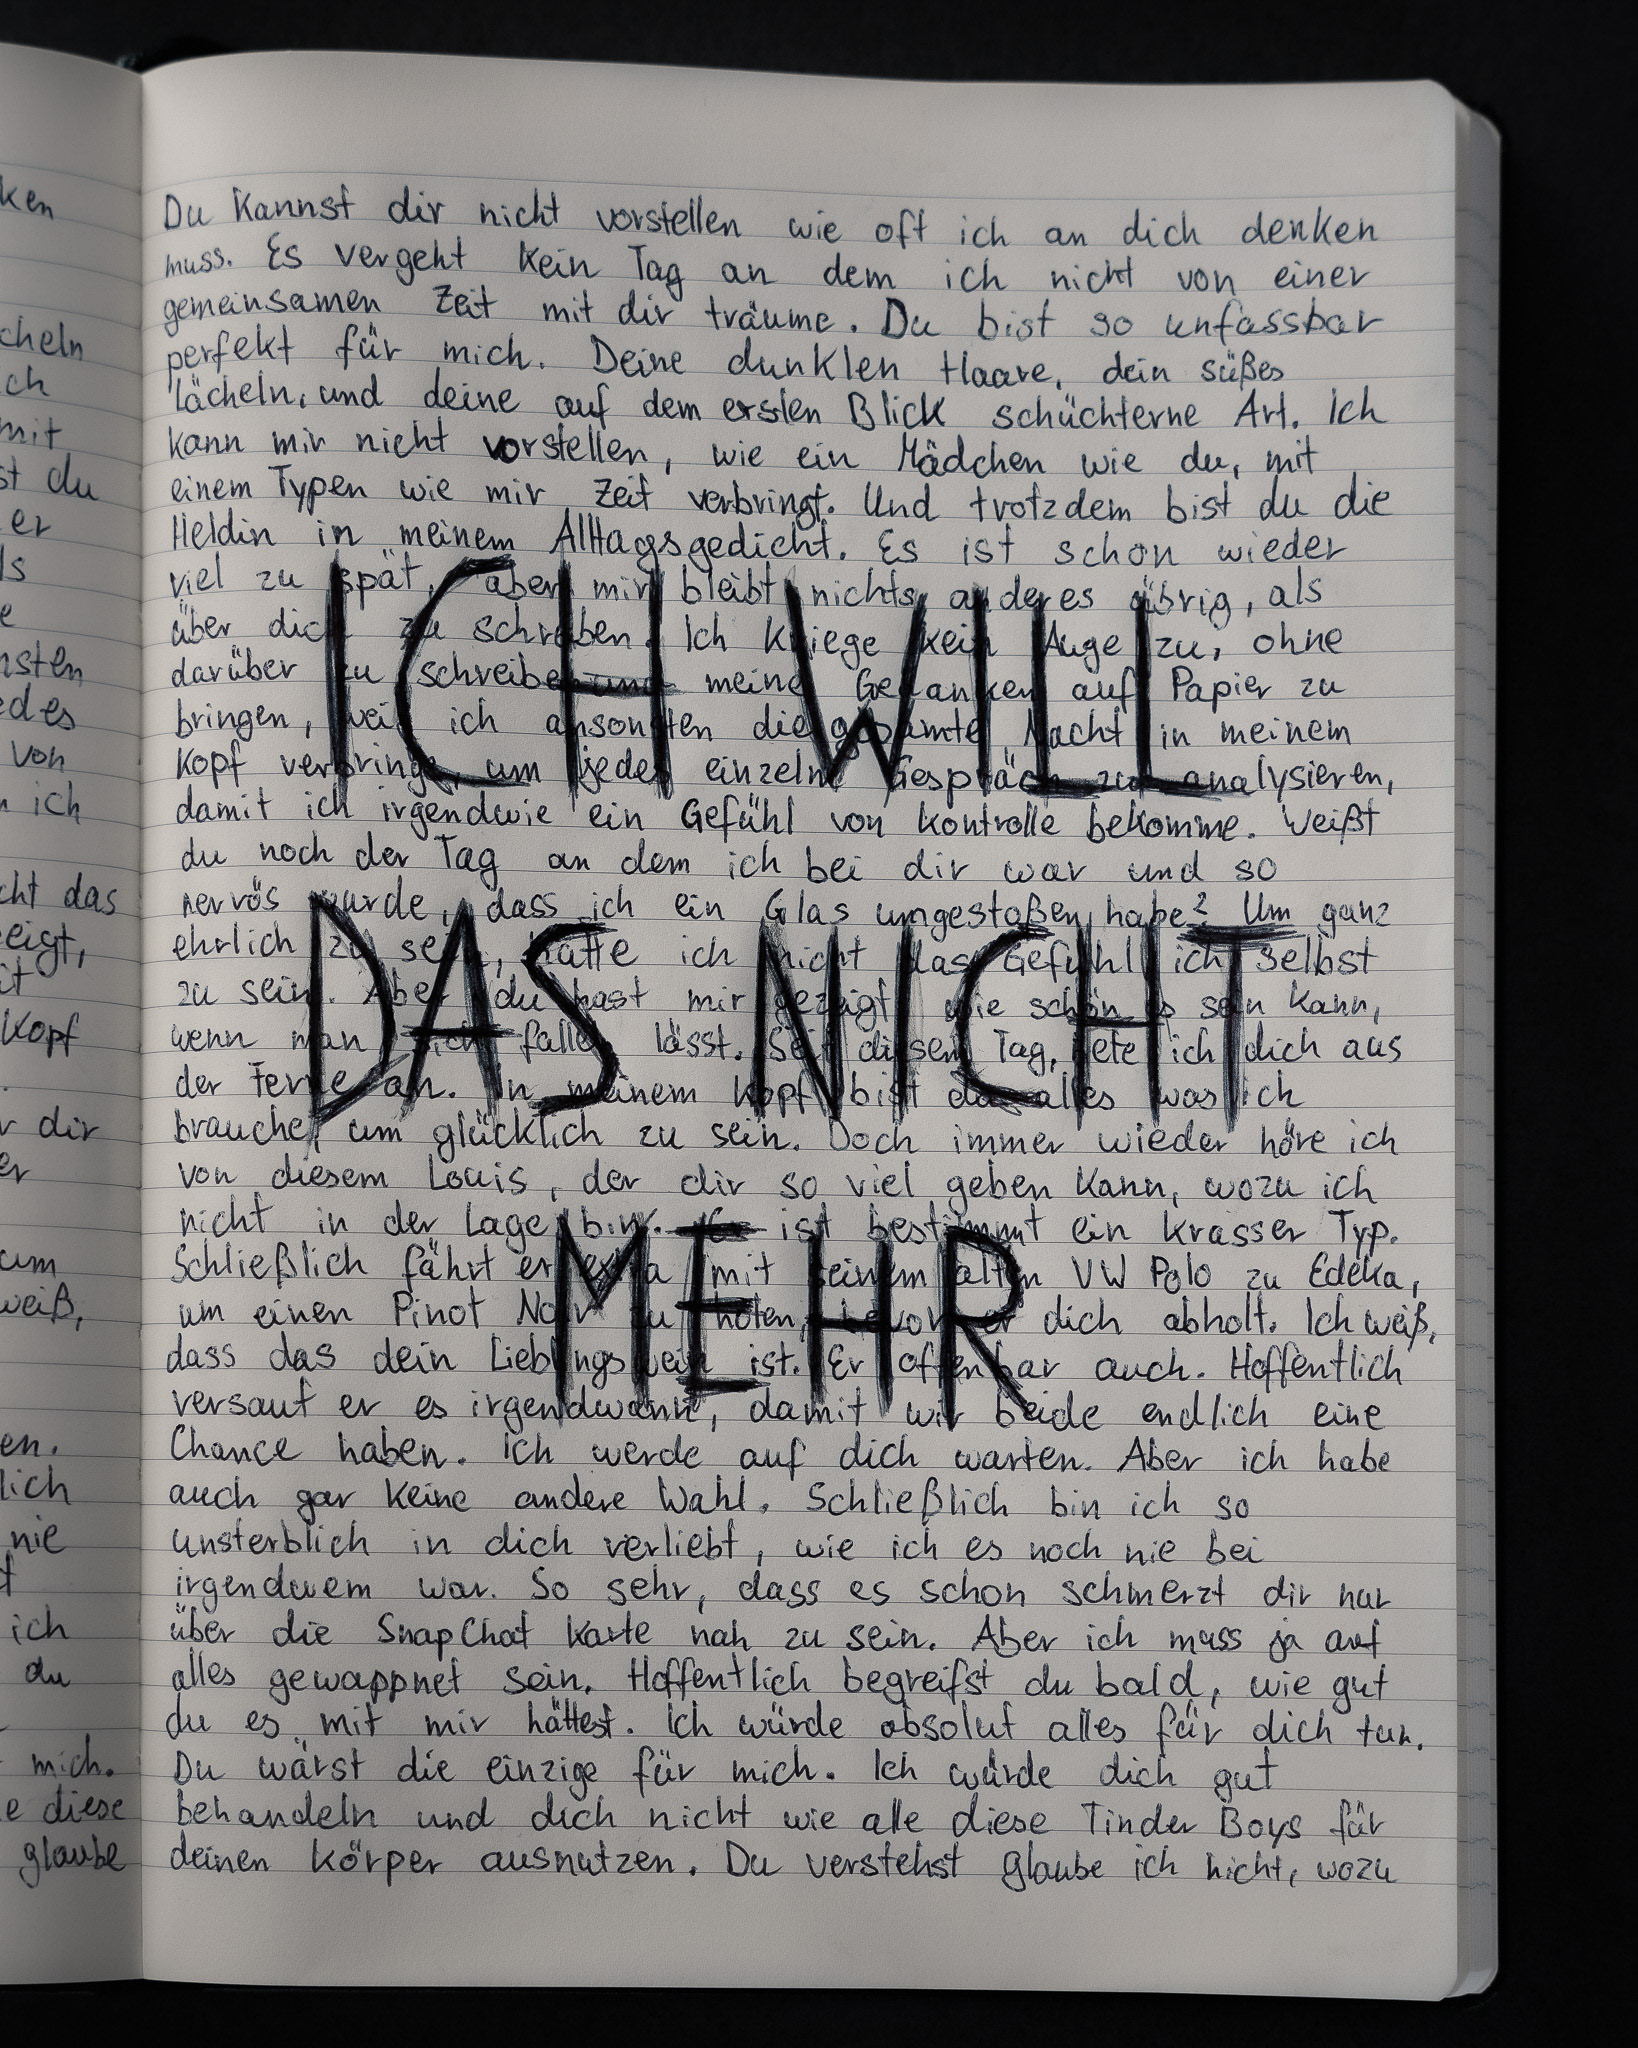 ken
cheln
ch
mit
st du
er
ls
e
nsten
edes
von
n ich
cht das
eigt,
it
Kopf
r dir
er
um
weiß,
en.
lich
nie
t
ich
du
t mich.
e diese
glaube
Du kannst dir nicht vorstellen wie oft ich an dich denken
muss. Es vergeht kein Tag an dem ich nicht von einer
gemeinsamen Zeit mit dir träume. Du bist so unfassbar
perfekt für mich. Deine dunklen Haare, dein süßes
Lächeln, und deine auf dem ersten Blick schüchterne Art. Ich
kann mir nicht vorstellen, wie ein Mädchen wie du, mit
einem Typen wie mir Zeit verbringt. Und trotzdem bist du die
Heldin in meinem Alltagsgedicht. Es ist schon wieder
viel zu spät, aber mir bleibt nichts anderes übrig, als
über dich zu schreiben. Ich kriege kein Auge zu, ohne
darüber zu schreiben und meine Gedanken auf Papier zu
bringen, weil ich ansonsten die gesamte Nacht in meinem
Kopf verbringe, um jedes einzelne Gespräch zu analysieren,
damit ich irgendwie ein Gefühl von Kontrolle bekomme. Weißt
du noch der Tag an dem ich bei dir war und so
nervös wurde, dass ich ein Glas umgestoßen habe? Um ganz
ehrlich zu sein, hatte ich nicht das Gefühl ich selbst
zu sein. Aber du hast mir gezeigt wie schön es sein kann,
wenn man sich fallen lässt. Seit diesem Tag, bete ich dich aus
der Ferne an. In meinem Kopf bist du alles was ich
brauche, um glücklich zu sein. Doch immer wieder höre ich
von diesem Louis, der dir so viel geben kann, wozu ich
nicht in der Lage bin. Er ist bestimmt ein krasser Typ.
Schließlich fährt er extra mit seinem alten VW Polo zu Edeka,
um einen Pinot Noir zu holen, bevor er dich abholt. Ich weiß,
dass das dein Lieblingswein ist. Er offenbar auch. Hoffentlich
versaut er es irgendwann, damit wir beide endlich eine
Chance haben. Ich werde auf dich warten. Aber ich habe
auch gar keine andere Wahl. Schließlich bin ich so
unsterblich in dich verliebt, wie ich es noch nie bei
irgendwem war. So sehr, dass es schon schmerzt dir nur
über die SnapChat Karte nah zu sein. Aber ich muss ja auf
alles gewappnet sein. Hoffentlich begreifst du bald, wie gut
du es mit mir hättest. Ich würde absolut alles für dich tun.
Du wärst die einzige für mich. Ich würde dich gut
behandeln und dich nicht wie alle diese Tinder Boys für
deinen Körper ausnutzen. Du verstehst glaube ich nicht, wozu
ICH WILL
DAS NICHT
MEHR